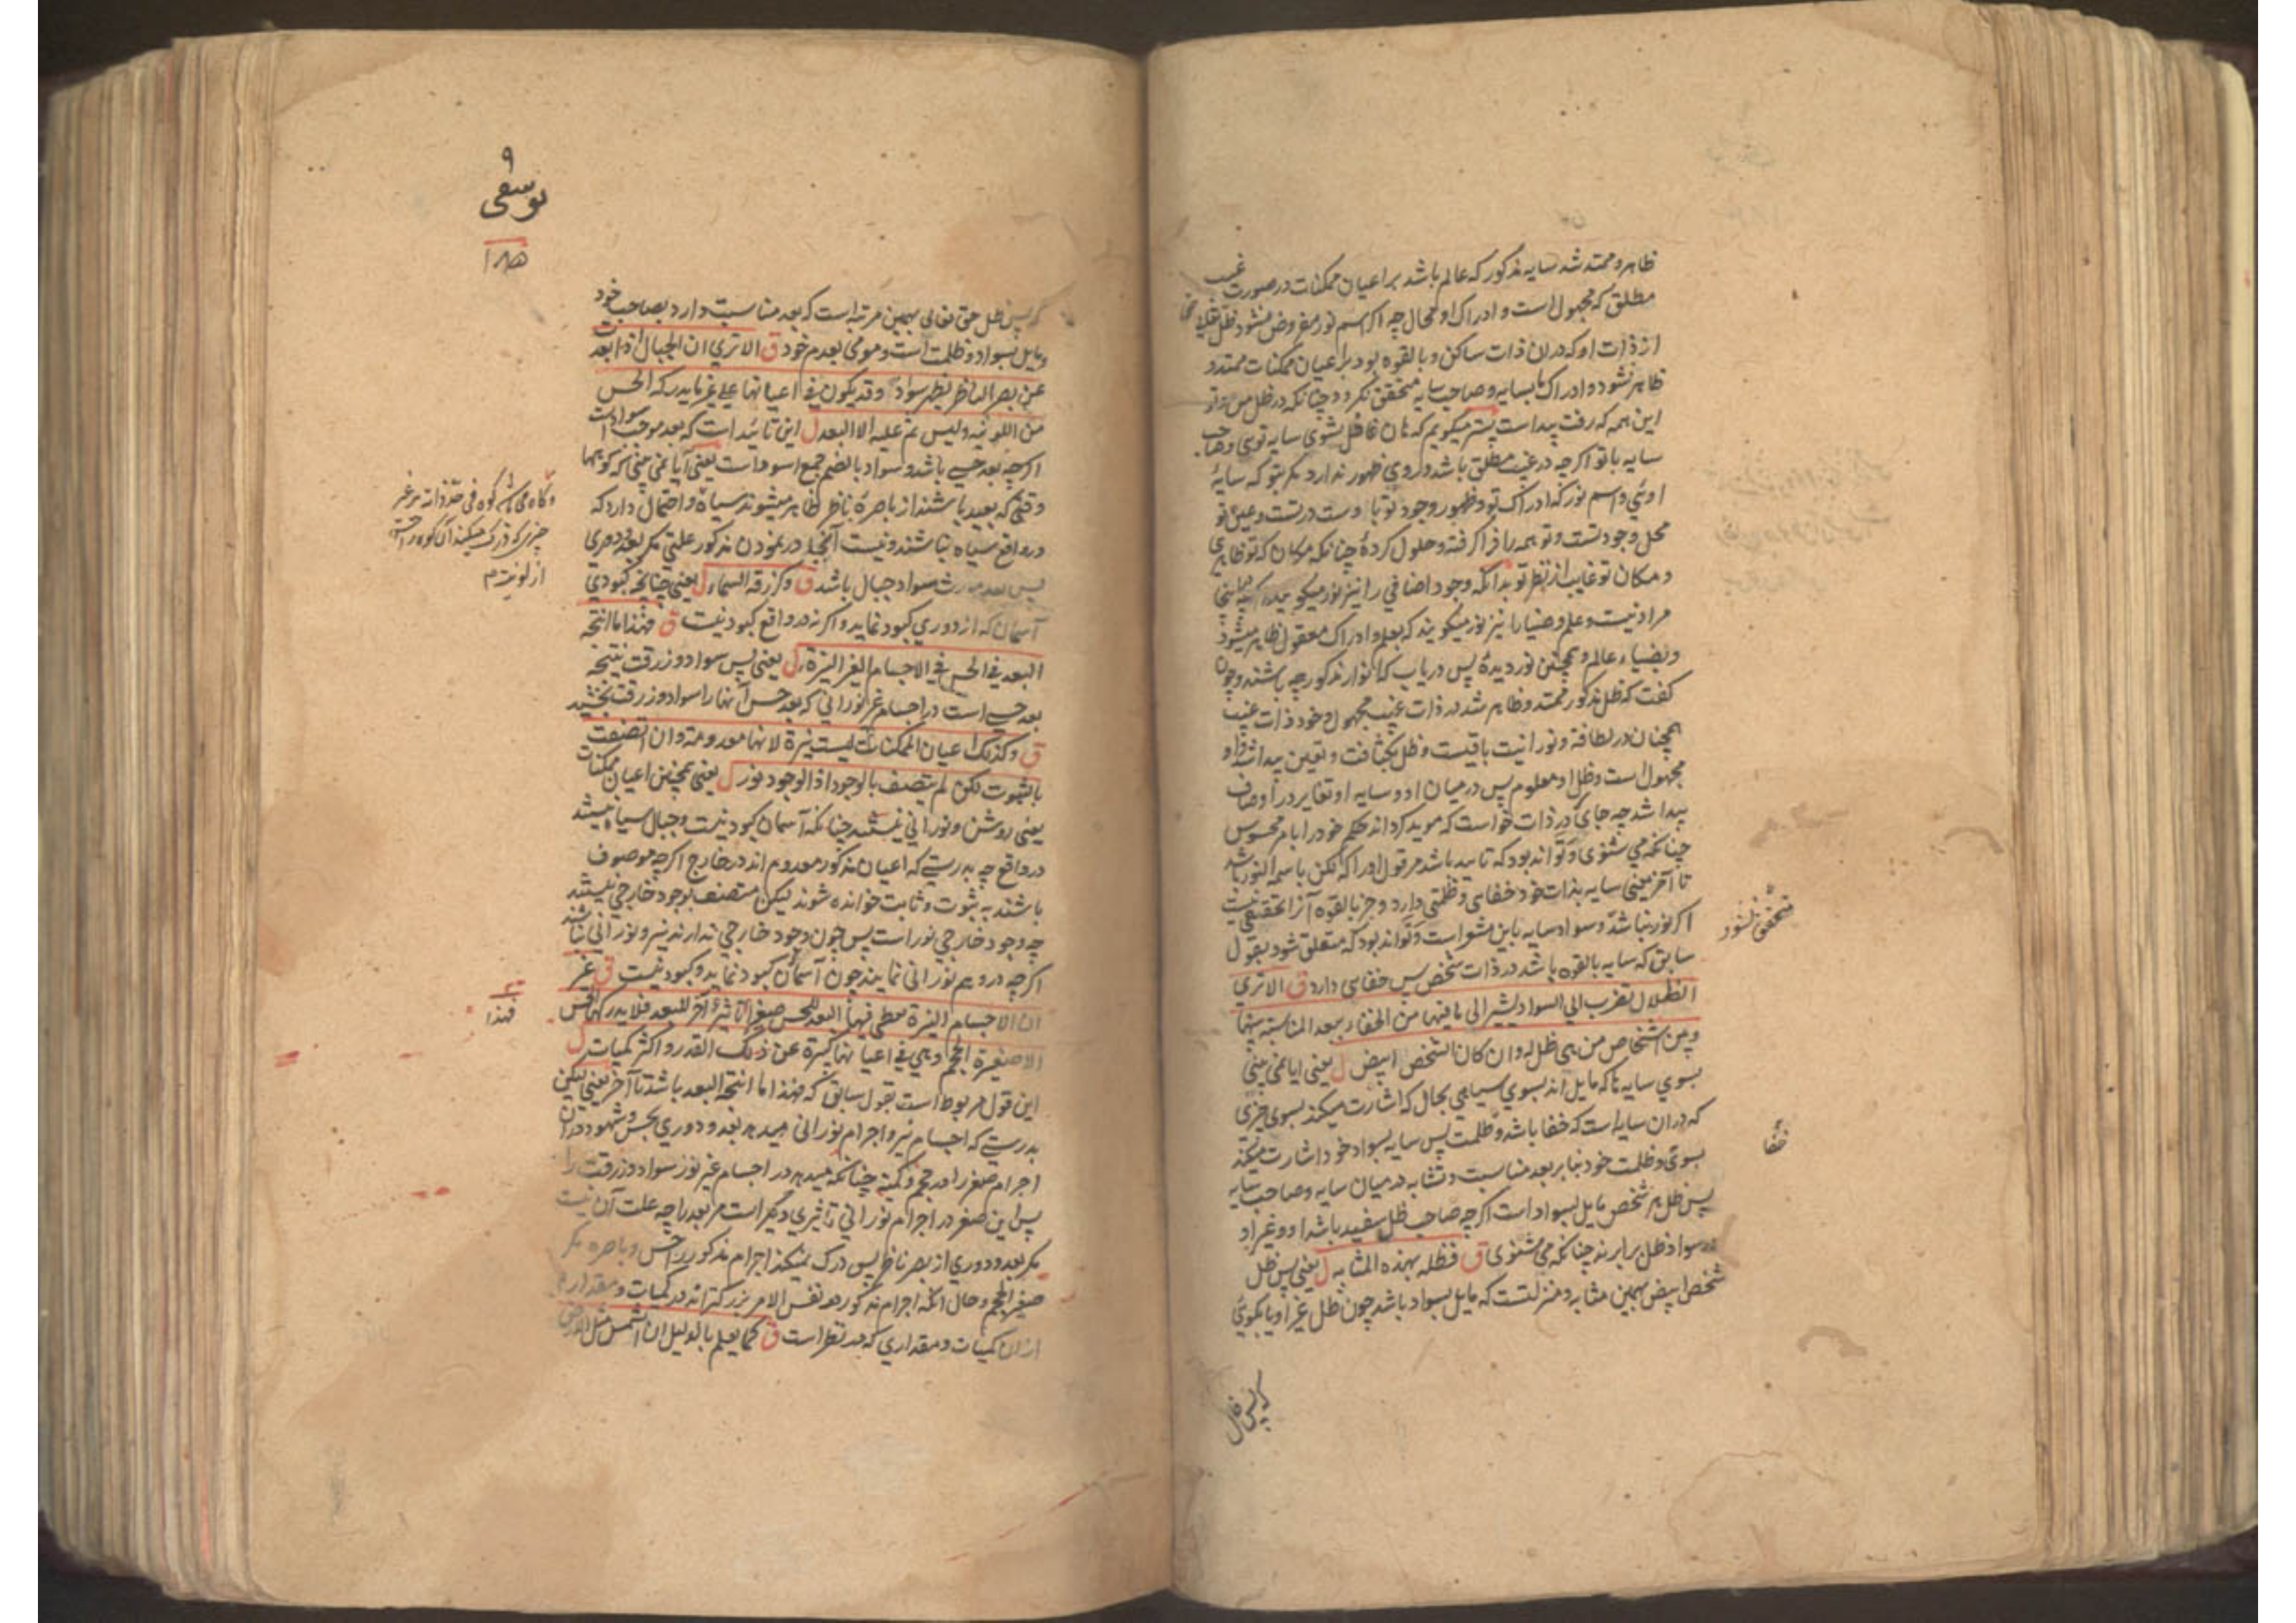 ظاهر و ممتد شد سایه مذکور که عالم باشد بر اعیان ممکنات در صورت غیب
مطلق که مجهول است و ادراک او محال چه اگر اسم نور مفروض نشود ظل
از ذات او که در ان ذات ساکن و بالقوه بود بر اعیان ممکنات ممتد و
ظاهر نشود و ادراک ما بسایه و صاحب سایه متحقق نکردد چنانکه در ظل
این همه که رفت پیداست میکویم که هان غافل نشوی سایه توی و صاحب
سایه با تو اکرچه در غیب مطلق باشد و روی ظهور ندارد مکر بتو که سایهٔ
اوئی و اسم نور که ادراک تو و ظهور وجود تو با وست درتست و عین تو
محل وجود تست و تو همه را فرا کرفته و حلول کردهٔ چنانکه مکان که تو ظاهری
و مکان تو غایب از نظر تو بدانکه وجود اضافی را نیز نور میکویند
مراد نیست و علم و ضیا را نیز نور میکویند که بعلم ادراک معقول ظاهر میشود
و بضیاء عالم و همچنین نور دیدهٔ پس دریاب که انوار مذکور چه باشند و چون
کفت که ظل مذکور ممتد و ظاهر شد در ذات غیب مجهول و خود ذات غیب
همچنان در لطافة و نورانیت باقیست و ظل بکثافت و تعین پیدا شد و او
مجهول است و ظل او معلوم پس در میان او و سایه او تغایر در اوصاف
پیدا شد چه جای در ذات خواست که موید کرداند حکم خود را بامر محسوس
چنانکه می شنوی و تواند بود که تایید باشد مر قول او را که لکن باسمه النور
تا آخر یعنی سایه بذات خود خفایی و ظلمتی دارد و جز بالقوه آنرا تحققی نیست
اکر نور نباشد و سواد سایه باین مشعر است و تواند بود که متعلق شود بقول
سابق که سایه بالقوه باشد در ذات شخص پس خفایی دارد ق الا تری
الظلال تضرب الی السواد یشیر الی ما فیها من الخفاء ببعد المناسبة بینها
و بین اشخاص من هی ظل له و ان کان الشخص ابیض ل یعنی ایا نمی بینی
بسوی سایه ها که مایل اند بسوی سیاهی بحال که اشارت میکند بسوی چیزی
که در ان سایه است که خفا باشد و ظلمت پس سایه بسواد خود اشارت میکند
بسوی و ظلمت خود بنا بر بعد مناسبت و تشابه در میان سایه و صاحب سایه
پس ظل هر شخص مایل بسواد است اکرچه صاحب ظل سفید باشد او و غیر او
در سواد ظل برابرند چنانکه می شنوی ق فظله بهذه المثابه ل یعنی پس ظل
شخص ابیض بهمین مثابه و منزلتست که مایل بسواد باشد چون ظل غیر او یا بکوئی
متحقق نشود
خفا
که پس ظل
۹
یوسفی
که پس ظل حق تعالی بهمین مرتبه است که بعد مناسبت دارد بصاحب خود
و مایل بسواد و ظلمت است و مومی بعدم خود ق الا تری ان الجبال اذا بعد
عن بصر الناظر یظهر سواد و قد یکون فی اعیانها علی غیر ما یدرکه الحس
من اللونیه و لیس ثم علیه الا البعد ل این تائید است که بعد موجب سوادست
اکرچه بعد حسی باشد و سواد بالضم جمع اسود است یعنی آیا نمی بینی که کوهها
وقتی که بعید باشند از باصرهٔ ناظر ظاهر میشوند سیاه و احتمال دارد که
در واقع سیاه نباشند و نیست آنجا در نمودن مذکور علتی مکر بعد و دوری
پس بعد مورث سواد جبال باشد ق و کزرقة السماء ل یعنی چنانچه کبودی
آسمان که از دوری کبود نماید و اکرنه در واقع کبود نیست ق فهذا ما انتجه
البعد فی الحس فی الاجسام الغیر النیرة ل یعنی پس سواد و زرقت نتیجه
بعد حسی است در اجسام غیر نورانی که بعد حس آنها را سواد و زرقت بخشید
ق و کذلک اعیان الممکنات لیست نیرة لانها معدومة و ان اتصفت
بالثبوت لکن لم یتصف بالوجود اذ الوجود نور ل یعنی همچنین اعیان ممکنات
یعنی روشن و نورانی نیستند چنانکه آسمان کبود نیست و جبال سیاه نیستند
در واقع چه بدرستی که اعیان مذکور معدوم اند در خارج اکرچه موصوف
باشند به ثبوت و ثابت خوانده شوند لیکن متصف بوجود خارجی نیستند
چه وجود خارجی نور است پس چون وجود خارجی ندارند نیر و نورانی نباشند
اکرچه در وهم نورانی نمایند چون آسمان کبود نماید و کبود نیست ق غیر
ان الاجسام النیرة تعطی فیها البعد للحس صغرا تاثیر آخر للبعد فلا یدرکها الحس
الا صغیرة الحجم و هی فی اعیانها کبیرة عن ذلک القدر و اکثر کمیات ل
این قول مربوط است بقول سابق که فهذا ما انتجه البعد باشد تا آخر یعنی لیکن
بدرستی که اجسام نیر و اجرام نورانی میدهد بعد و دوری بحس و شهود در ان
اجرام صغر را در حجم و کمیة چنانکه میدهد در اجسام غیر نور سواد و زرقت را
پس این صغر در اجرام نورانی تاثیری دیکر است مر بعد را چه علت آن نیست
مکر بعد و دوری از بصر ناظر پس درک نمیکند اجرام مذکور را حس و باصره مکر
صغیر الحجم و حال آنکه اجرام مذکور در نفس الامر بزرکتراند در کمیات و مقدار
از ان کمیات و مقداری که در نظر است ق کما یعلم بالدلیل ان الشمس مثل الارض
و کاه می کوه فی حد ذاته بر غیر
چیزی که درک میکند آن کوه را حس
از لونیت م
فهذا